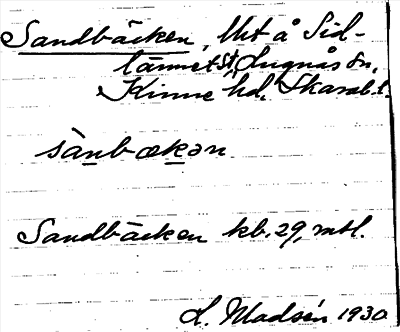 Sandbäcken, lht å Sid-
tärnet St, Lugnås sn,
Kinne hd. Skarab. l.
sànbækən
Sandbäcken kb. 29, mtl.
L. Madsén 1930